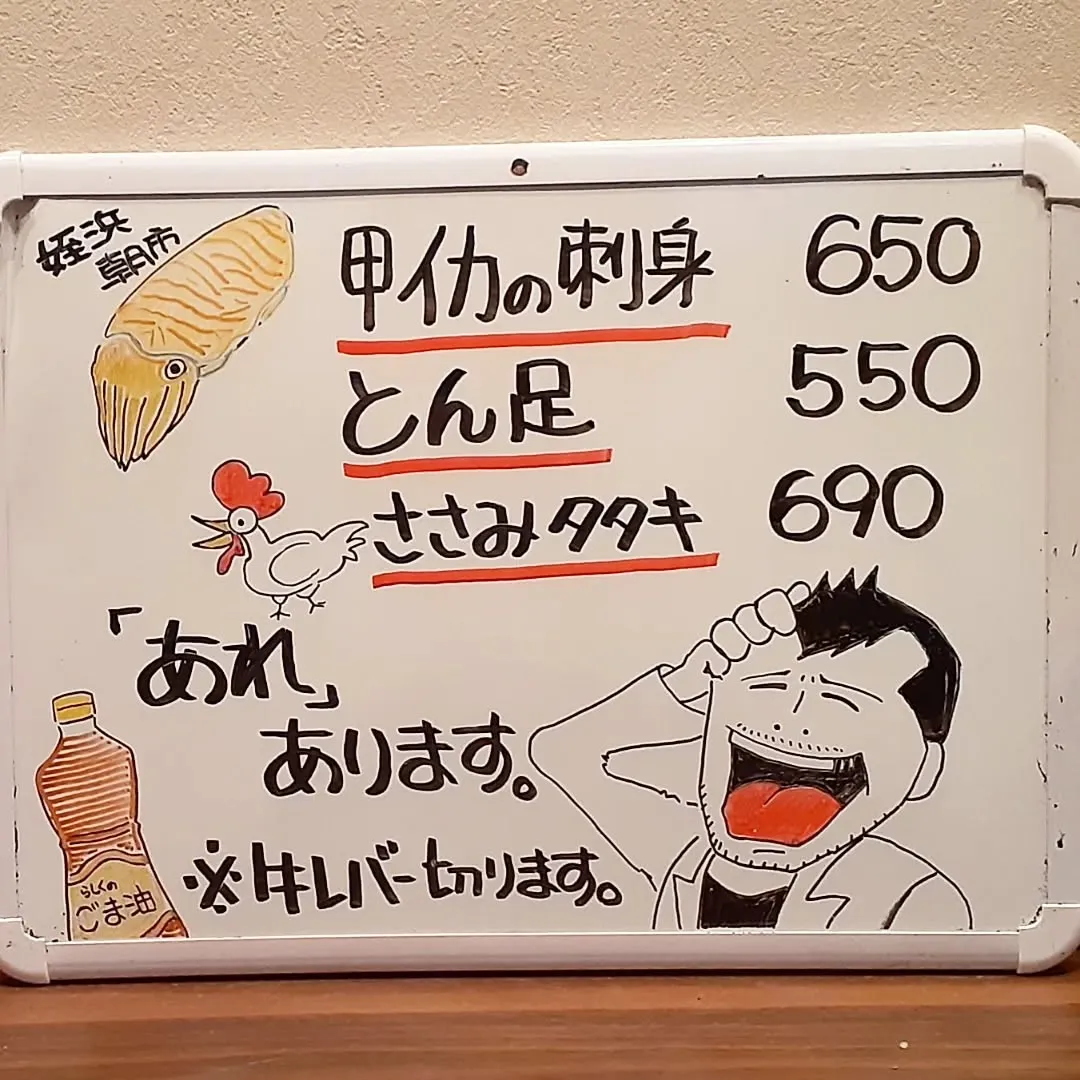 姪浜
朝市
甲イカの刺身 650
とん足 550
ささみタタキ 690
「あれ」
あります。
※牛レバー切ります。
らしくの
ごま油